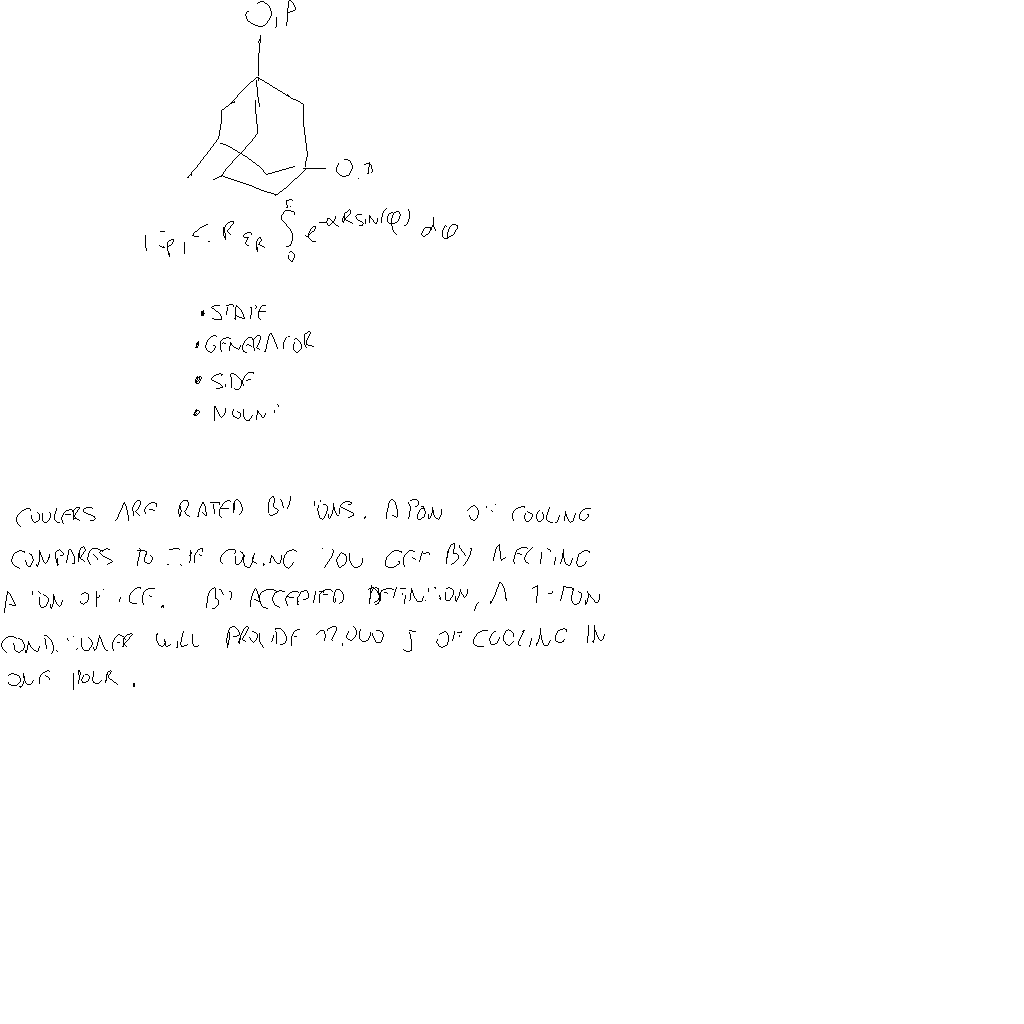 • STATE
• GENERATOR
• SIDE
• MOUNT
COOLERS ARE RATED BY TONS. A TON OF COOLING
COMPARES TO THE COOLING YOU GET BY MELTING
A TON OF ICE. BY ACCEPTED DEFINITION, A 1-TON
CONDITIONER WILL PROVIDE OF COOLING IN
ONE HOUR.